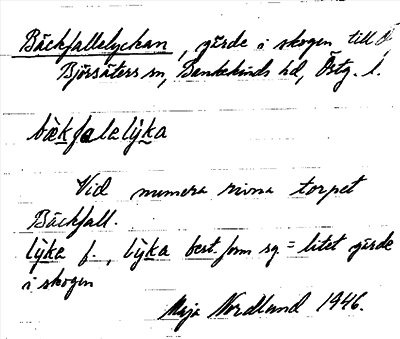 Bäckfallelyckan, gärde i skogen till
Björsäters sn, Bankekinds hd, Östg. l.
bäkfalalỳka
Vid numera rivna torpet
Bäckfall.
lỳka f., lỳka best. form sg. = litet gärde
i skogen
Maja Nordlund 1946.